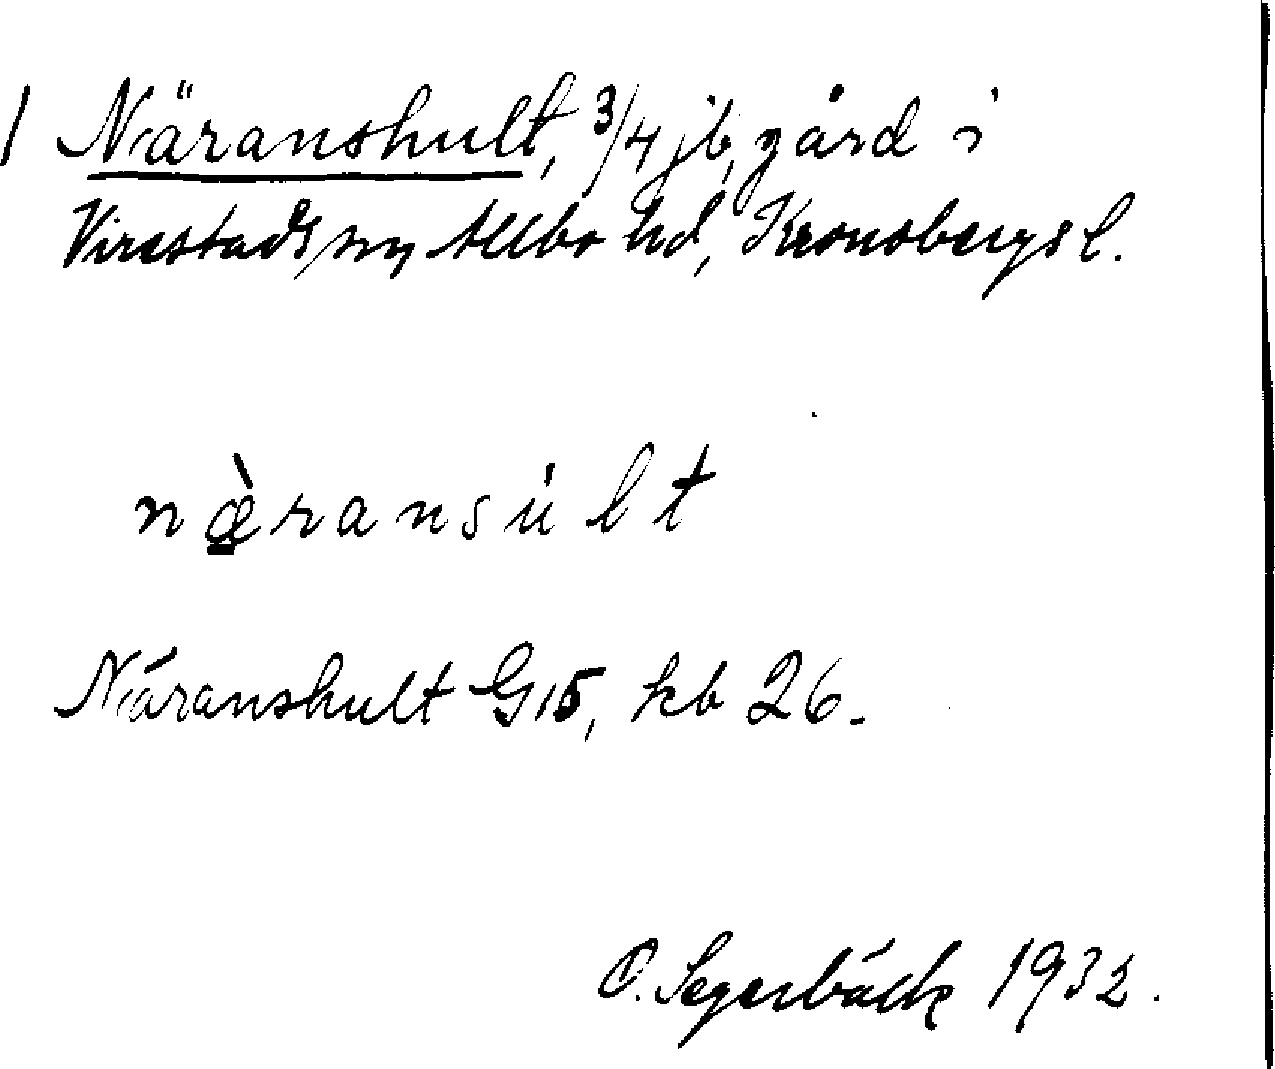 1 Näranshult, 3/4 jb, gård i
Virestads sn, Allbo hd, Kronobergs l.
næ̀ransúlt
Näranshult G15, kb 26.
O. Segerbäck 1932.